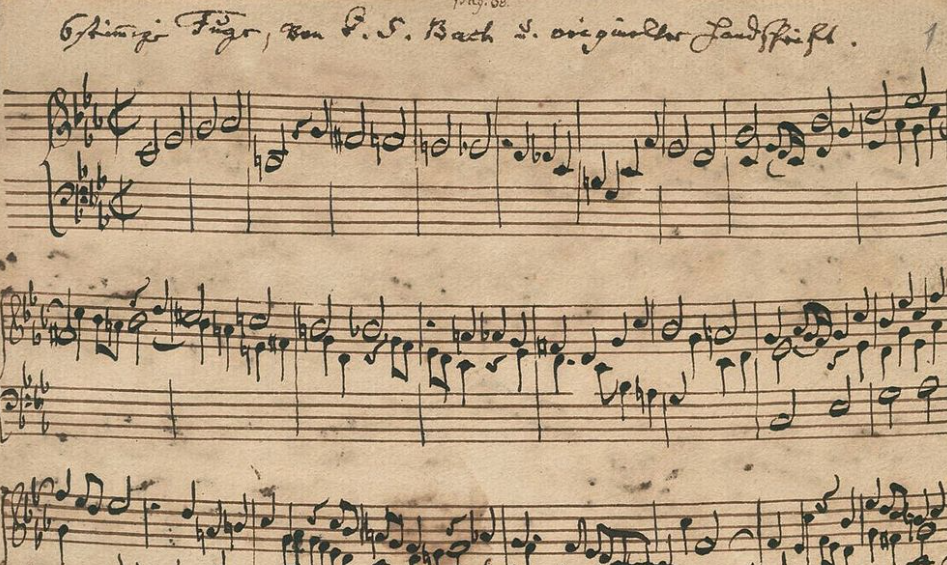 pag. 58.
6stimmige Fuge, von J. S. Bach u. origineller Handschrift.
1